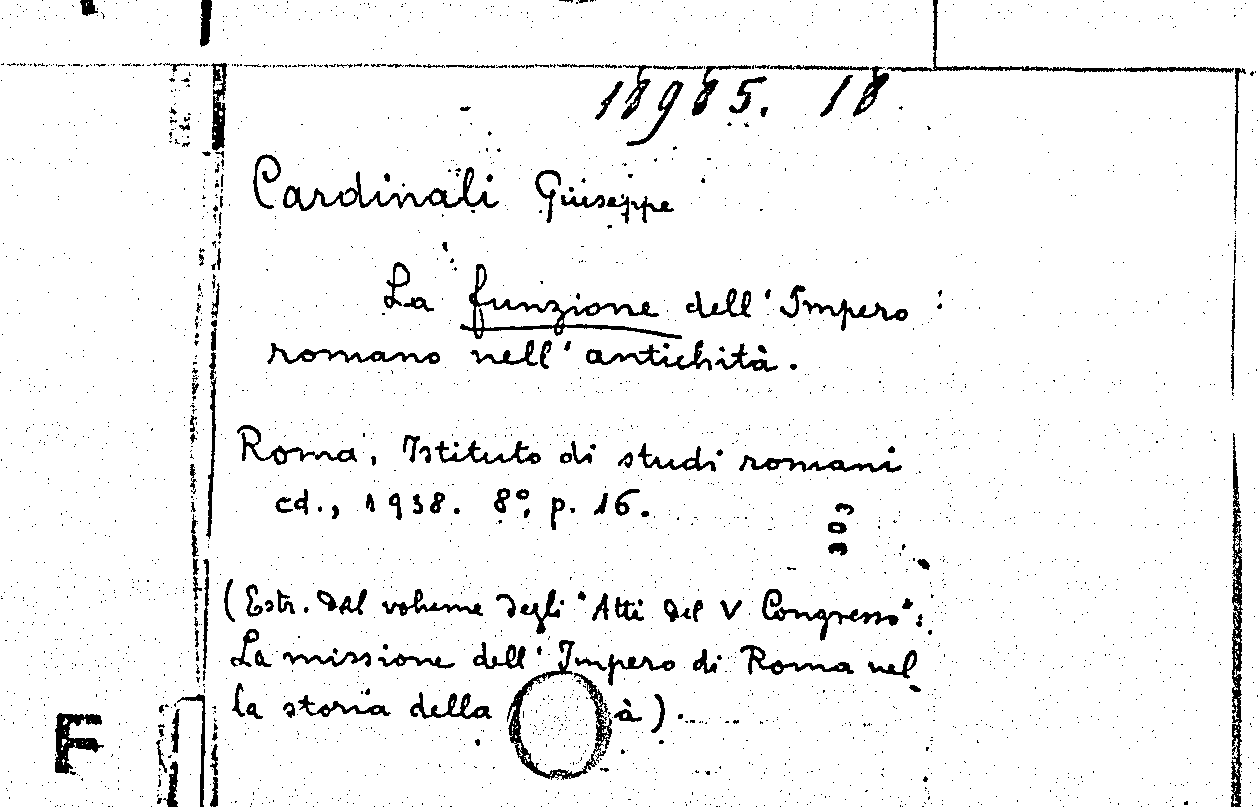 18985. 18
Cardinali Giuseppe
La funzione dell'Impero
romano nell'antichità.
Roma, Istituto di studi romani
ed., 1938. 8°, p. 16.
303
(Estr. dal volume degli "Atti del V Congresso":
La missione dell'Impero di Roma nel
la storia della à).
F